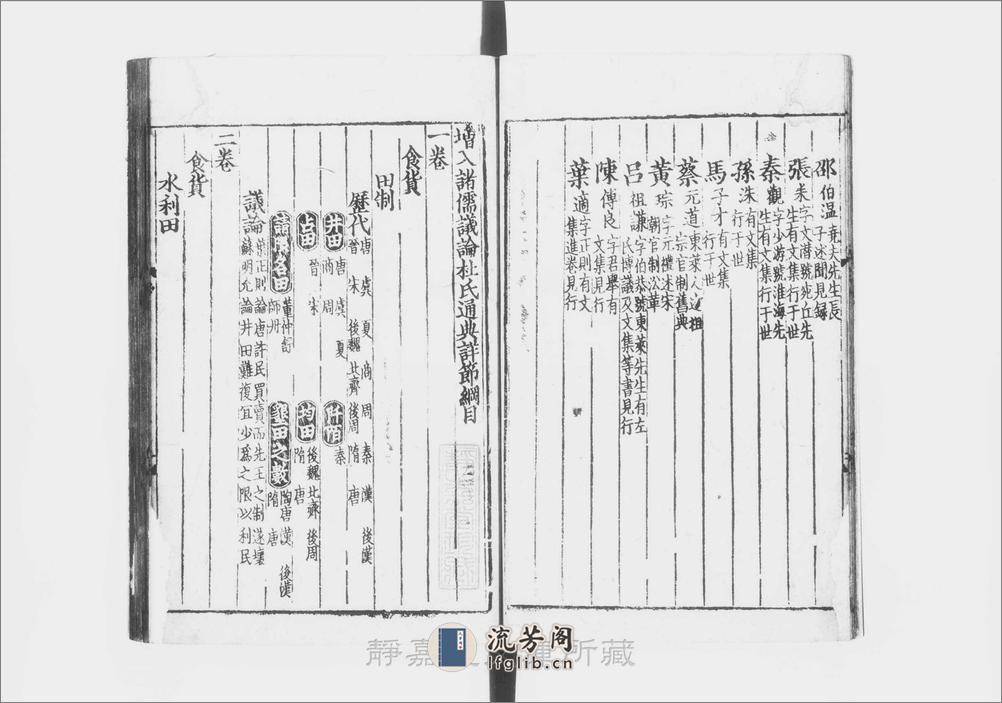 邵伯溫 堯夫先生長子述聞見錄
張耒 字文潛號宛丘先生有文集行于世
秦觀 字少游號淮海先生有文集行于世
孫洙 有文集行于世
馬子才 有文集行于世
蔡元道 東萊人述祖宗官制舊典
黃琮 字元禮述宋朝官制沿革
呂祖謙 字伯恭號東萊先生有左氏博議及文集等書見行
陳傅良 字君舉有文集見行
葉適 字正則有文集進卷見行
增入諸儒議論杜氏通典詳節綱目
一卷
食貨
田制
歷代 唐 虞 夏 商 周 秦 漢 後漢 晉 宋 後魏 北齊 後周 隋 唐
井田 唐 虞 夏 商 周 阡陌 秦
占田 晉 宋 均田 後魏 北齊 後周 隋 唐
請限名田 董仲舒 師丹 墾田之數 陶唐 漢 後漢 隋 唐
議論 葉正則論唐許民買賣而先王之制遂壞 蘇明允論井田難復宜少爲之限以利民
二卷
食貨
水利田
流芳阁
lfglib.cn